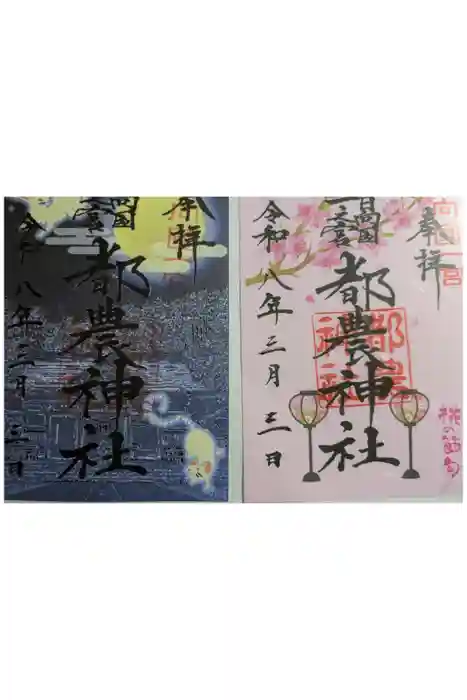 奉拝
日向国
一之宮
都農神社
令和八年三月三日
奉拝
日向国
一之宮
都農神社
令和八年三月三日
桃の節句